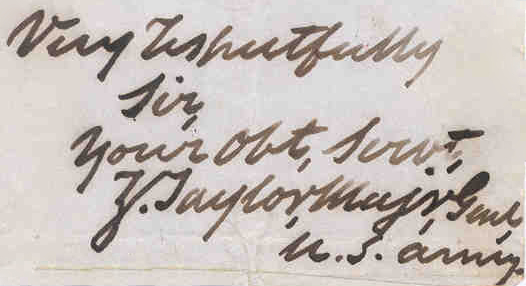 Very Respectfully
Sir,
Your Obt, Servt,
Z. Taylor Majr, Genl,
U. S. Army